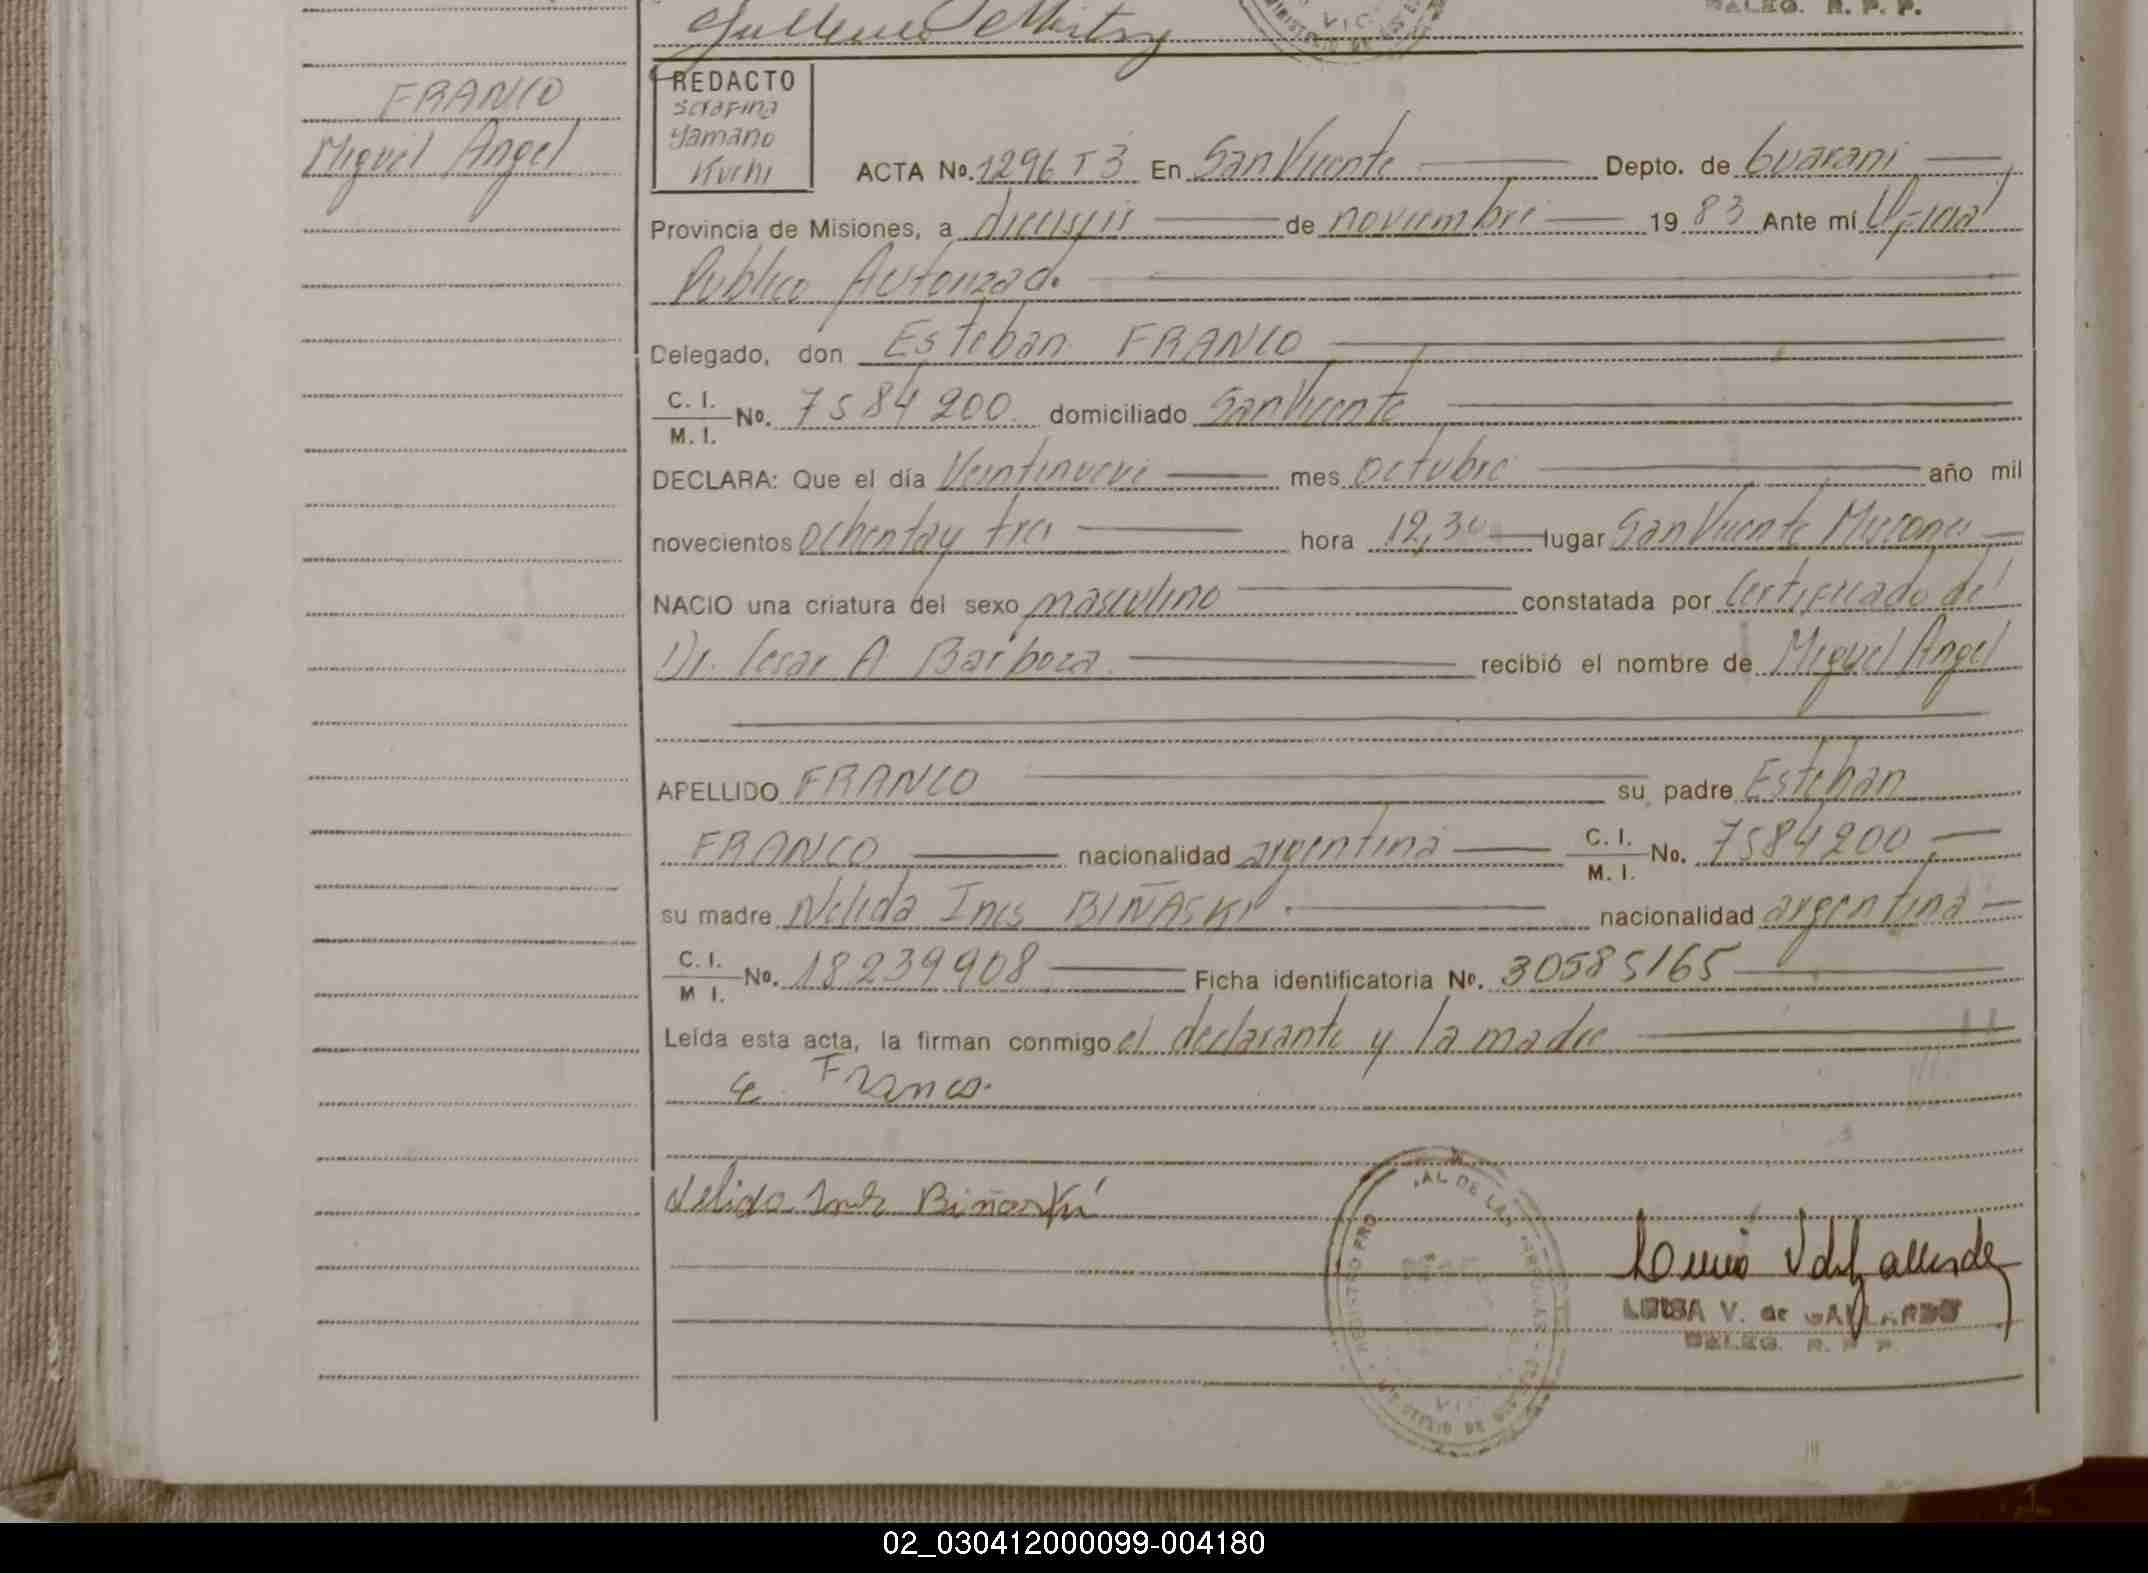 Guillermo
BALEG. R. P. P.
FRANCO
Miguel Angel
REDACTO
Serafina
Yamano
Kuchi
ACTA No. 1296 T 3 En San Vicente Depto. de Guarani
Provincia de Misiones, a dieciseis de noviembre 19 83 Ante mí Oficial
Publico Autorizado
Delegado, don Esteban FRANCO
C. I.
M. I. No. 7584200 domiciliado San Vicente
DECLARA: Que el día Veintinueve mes octubre año mil
novecientos ochenta y tres hora 12,30 lugar San Vicente Misiones
NACIO una criatura del sexo masculino constatada por Certificado del
Dr. Cesar A Barboza recibió el nombre de Miguel Angel
APELLIDO FRANCO su padre Esteban
FRANCO nacionalidad argentina C. I.
M. I. No. 7584200
su madre Nelida Ines BIÑASKI nacionalidad argentina
C. I.
M I. No. 18239908 Ficha identificatoria No. 30585165
Leída esta acta, la firman conmigo el declarante y la madre
E. Franco.
Nelida Inés Biñaski
LUISA V. de GALLARDO
DALEG. R. P. P.
02_030412000099-004180